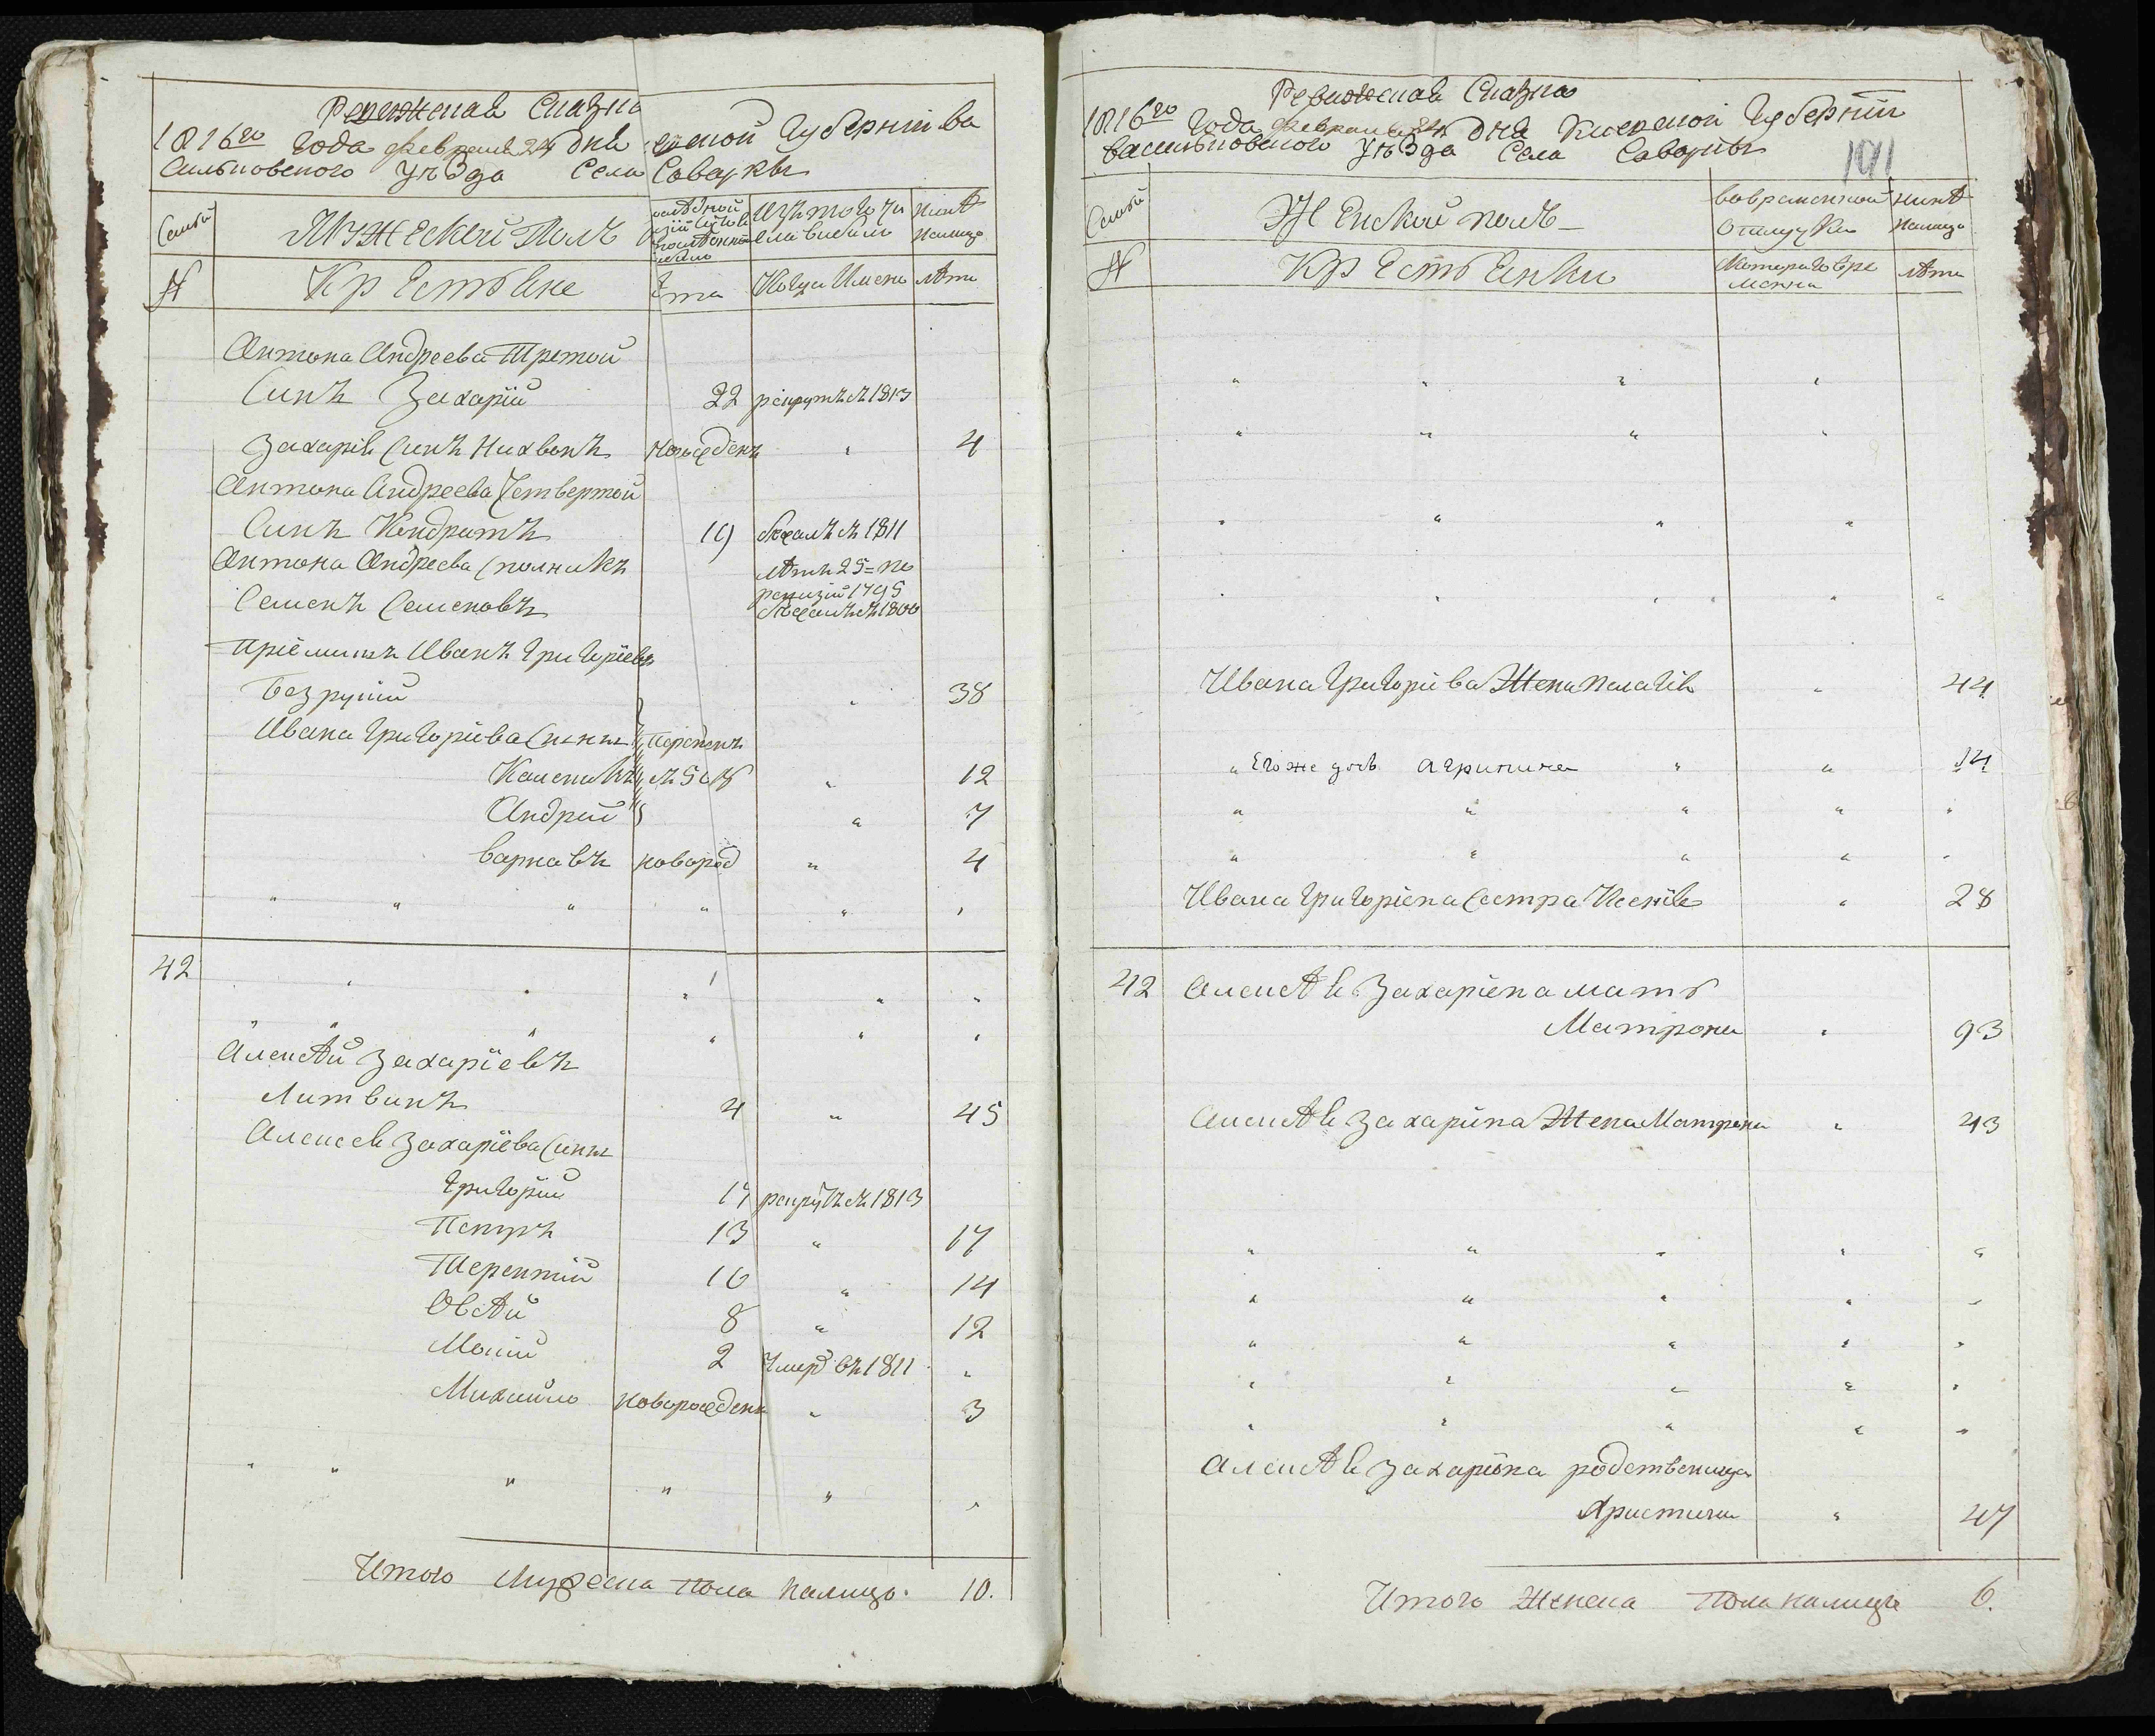 Ревижская Сказка
1816го года февраля 24 дня Киевской Губернии ва
сильковского уезда Села Саварки
Семьи
Мужеской Полъ
Изъ того чи
сла выбыло
Ниne
налицо
№
Крестьяне
Лета
Когда Имено
лета
Антона Андреева Третой
Синъ Захарій 22 рекрутъ въ 1813
Захарія Синъ Нихвонъ новорожденъ " 4
Антона Андреева Четвертой
Синъ Кондратъ 19 бежалъ въ 1811
Антона Андреева
летъ 25 = по
Семенъ Семеновъ
ревизіи 1795
бежалъ въ 1800
Пріемышъ Иванъ Григоріевъ
Безрукій " 38
Ивана Григоріева Сыны
Каленикъ " 12
Андрей " 7
Варнавъ новород " 4
" " " " " "
42 " " " " "
" " " " " "
Алексѣй Захаріевъ
Литвинъ 4 " 45
Алексея Захаріева Сины
Григорій 17 рекрутъ въ 1813
Петръ 13 " 17
Терентій 10 " 14
Овсѣй 8 " 12
Мокій 2 Умеръ въ 1811 "
Михайло новорожденъ " 3
" " " " " "
Итого Мужеска пола налицо. 10.
Ревижская Сказка
1816го года февраля 24 дня Киевской Губернии
васильковского уезда Села Саварки
191
Семьи
Женской полъ
вовременной
отлучке
ныне
налицо
№
Крестьянки
лета
" " " "
" " " "
" " " "
" " " " "
Ивана Григоріева Жена Пелагія " 44
" Егоже дочь Агрипина " " 14
" " " " "
" " " " "
Ивана Григоріева Сестра Ксенія " 28
42 Алексѣя Захаріева мать
Матрона " 93
Алексѣя Захаріева Жена Матрона " 43
" " " " "
" " " " "
" " " " "
" " " " "
" " " " "
Алексѣя Захаріева родственица
Христина " 47
Итого Женска Пола налицо 6.